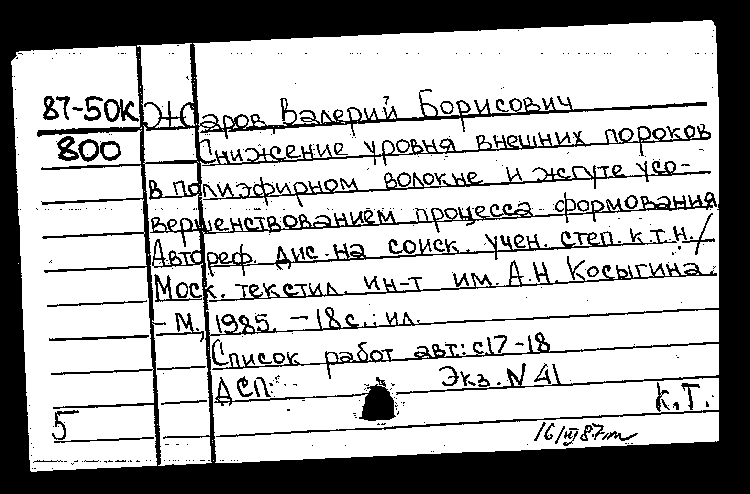 87-50К Жаров, Валерий Борисович
800 Снижение уровня внешних пороков
в полиэфирном волокне и жгуте усо-
вершенствованием процесса формования
Автореф. дис. на соиск. учен. степ. к.т.н. /
Моск. текстил. ин-т им. А.Н. Косыгина.
- М., 1985. - 18с.: ил.
Список работ авт.: с17-18
ДСП. Экз. N 41
5 К.Т.
16/III 87